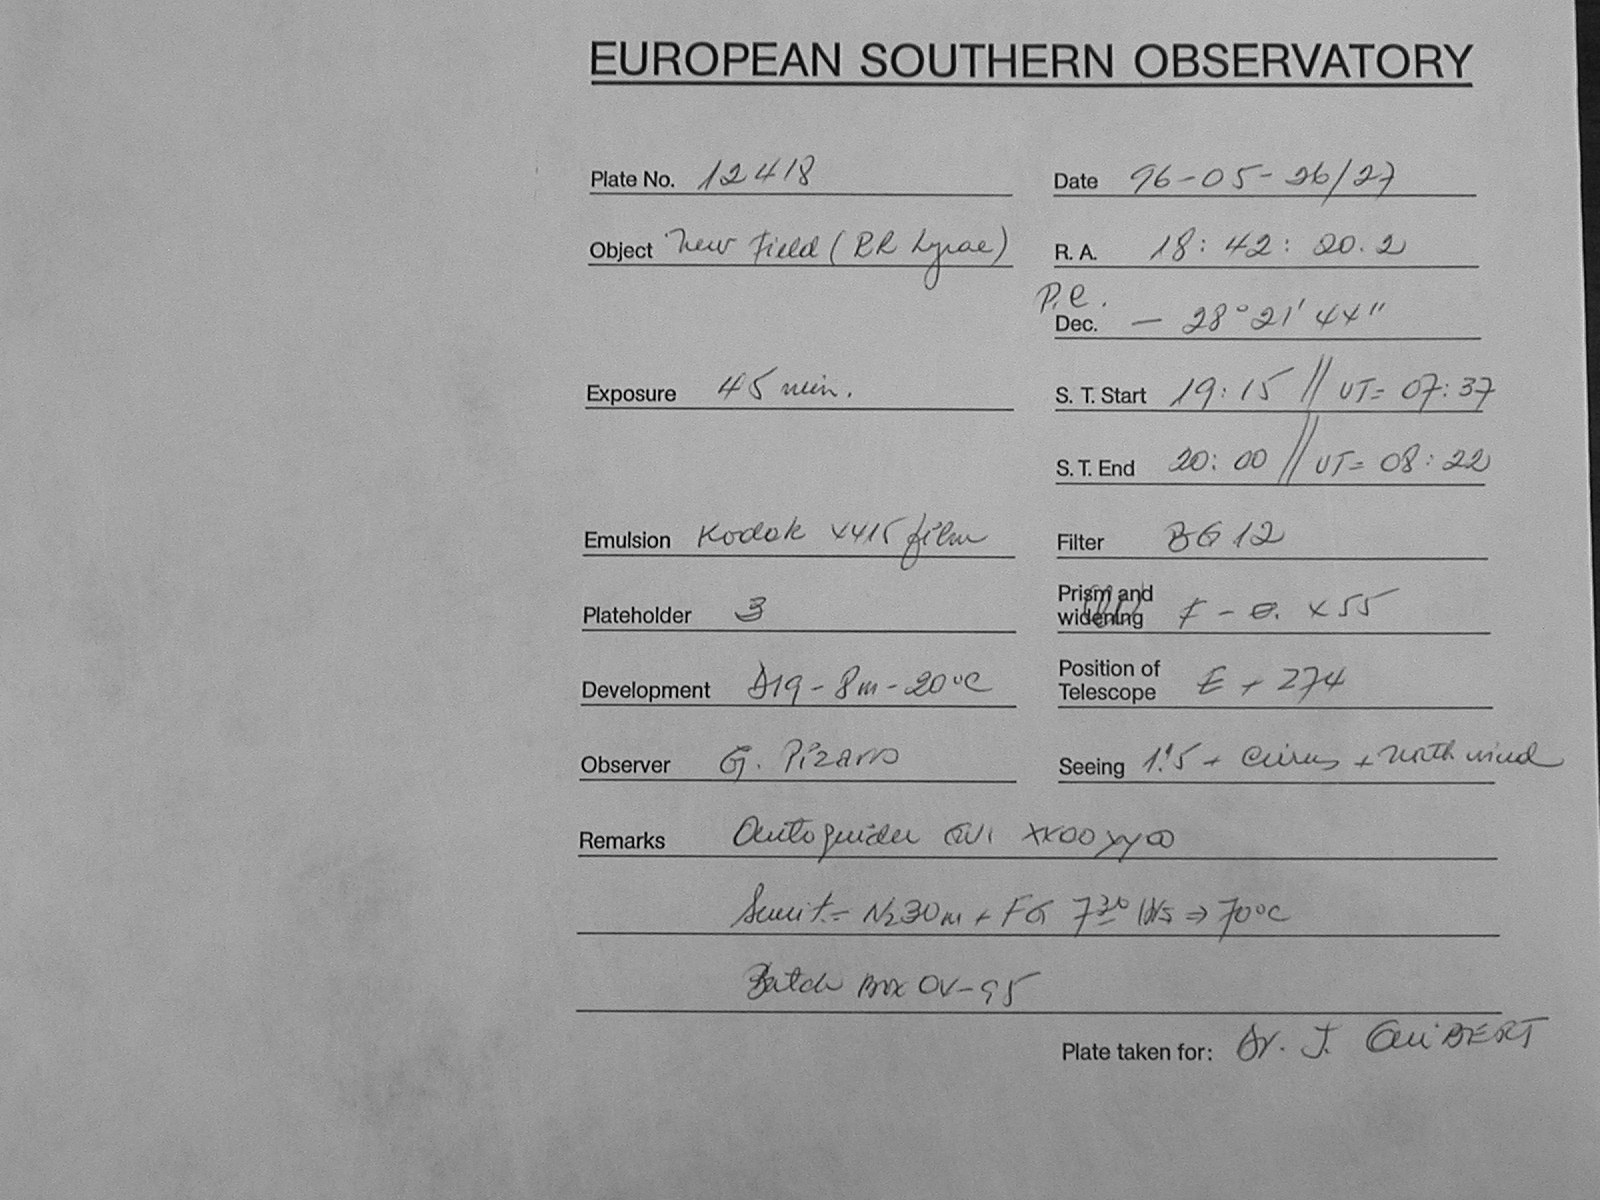 EUROPEAN SOUTHERN OBSERVATORY
Plate No. 12418
Date 96-05-26/27
Object New Field (RR Lyrae)
R. A. 18: 42: 20.2
P.e.
Dec. - 28° 21' 44"
Exposure 45 min.
S. T. Start 19: 15 // UT= 07: 37
S. T. End 20: 00 // UT= 08: 22
Emulsion Kodak 4415 film
Filter BG 12
Plateholder 3
Prism and
widening F - e. x 55
Development D19 - 8m - 20°C
Position of
Telescope E + 274
Observer G. Pizarro
Seeing 1".5 + Cirrus + North wind
Remarks Autoguider xx00 yy00
N2 30m + FG 7 30 hrs ⇒ 70°C
Batch Box OV-95
Plate taken for: Dr. J. GUIBERT